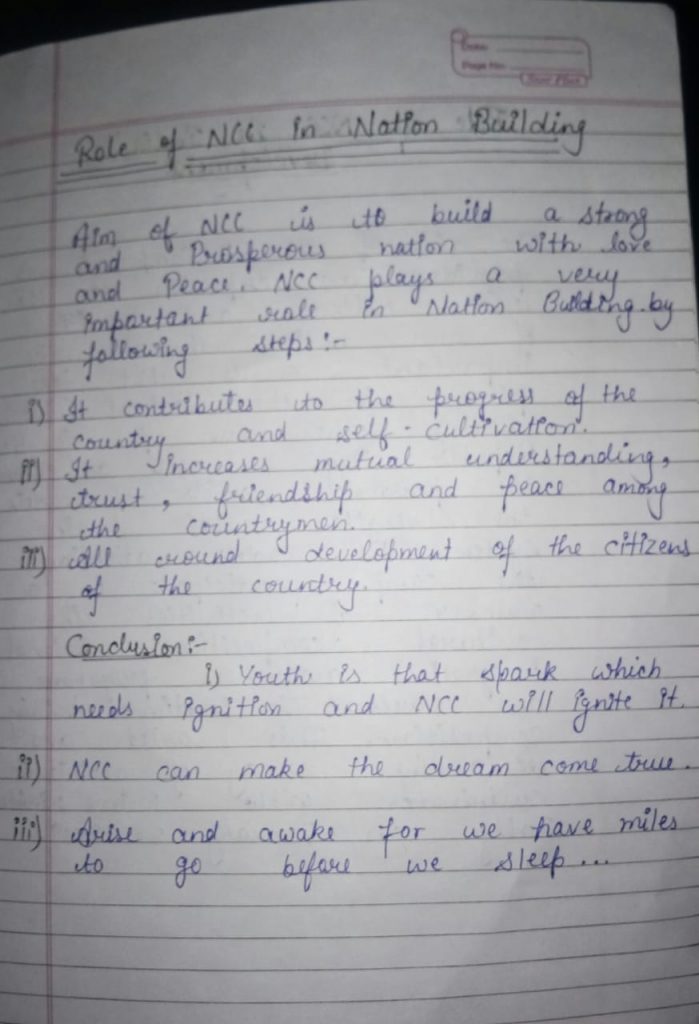 Date
Page No.
Role of NCC in Nation Building
Aim of NCC is to build a strong
and Prosperous nation with love
and Peace. NCC plays a very
important role in Nation Building by
following steps :-
i) It contributes to the progress of the
country and self-cultivation.
ii) It increases mutual understanding,
trust, friendship and peace among
the countrymen.
iii) All around development of the citizens
of the country.
Conclusion :-
i) Youth is that spark which
needs ignition and NCC will ignite it.
ii) NCC can make the dream come true.
iii) Arise and awake for we have miles
to go before we sleep...